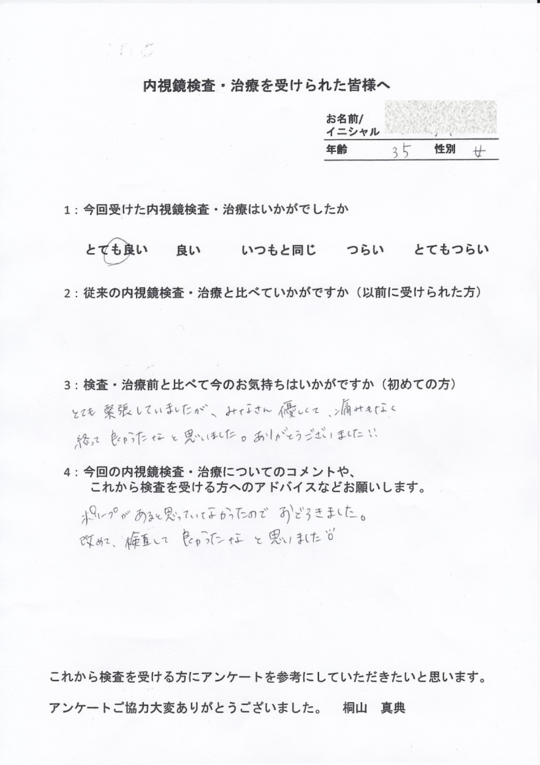 内視鏡検査・治療を受けられた皆様へ
お名前/
イニシャル
年齢 35 性別 女
1:今回受けた内視鏡検査・治療はいかがでしたか
とても良い 良い いつもと同じ つらい とてもつらい
2:従来の内視鏡検査・治療と比べていかがですか(以前に受けられた方)
3:検査・治療前と比べて今のお気持ちはいかがですか(初めての方)
とても緊張していましたが、みなさん優しくて、痛みもなく
終って良かったなと思いました。ありがとうございました!!
4:今回の内視鏡検査・治療についてのコメントや、
これから検査を受ける方へのアドバイスなどお願いします。
ポリープがあると思っていなかったのでおどろきました。
改めて、検査して良かったなと思いました
これから検査を受ける方にアンケートを参考にしていただきたいと思います。
アンケートご協力大変ありがとうございました。 桐山 真典